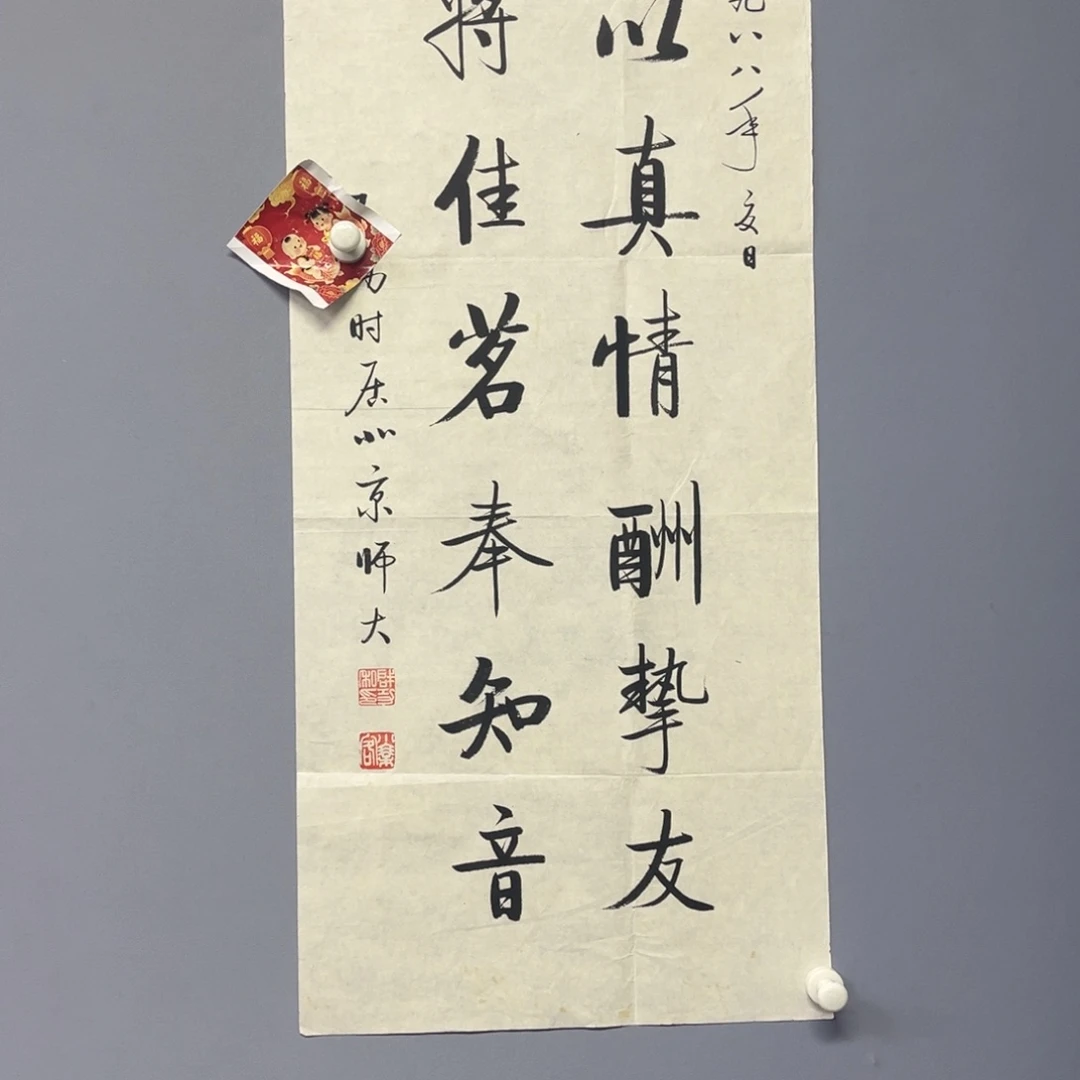 九八八年 夏日
以真情酬摯友
将佳茗奉知音
时居北京师大